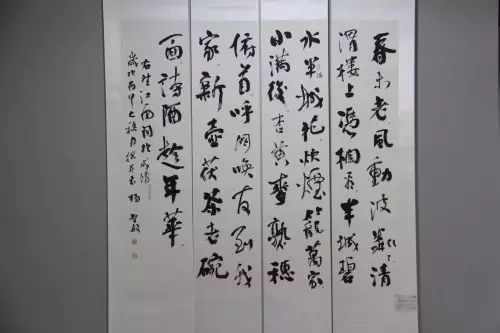 春未老風動波粼〻清
渭樓上憑欄看半城碧
水半城花炊煙籠萬家
小滿後杏黃麥熟穗
俯首呼朋喚友到我
家新壺茯茶老碗
面詩酒趁年華
右望江南詞於咸陽
歲次丙申之 月 書 楊